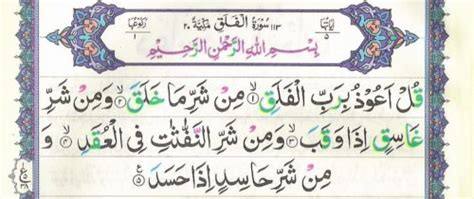 اٰيَاتُهَا ٥
١١٣ سُوْرَةُ الْفَلَقِ مَدَنِيَّةٌ ٢٠
رُكُوْعُهَا ١
بِسْمِ اللّٰهِ الرَّحْمٰنِ الرَّحِيْمِ
قُلْ اَعُوْذُ بِرَبِّ الْفَلَقِ ۙ۝١ مِنْ شَرِّ مَا خَلَقَ ۙ۝٢ وَمِنْ شَرِّ
غَاسِقٍ اِذَا وَقَبَ ۙ۝٣ وَمِنْ شَرِّ النَّفّٰثٰتِ فِي الْعُقَدِ ۙ۝٤ وَ
مِنْ شَرِّ حَاسِدٍ اِذَا حَسَدَ ۝٥